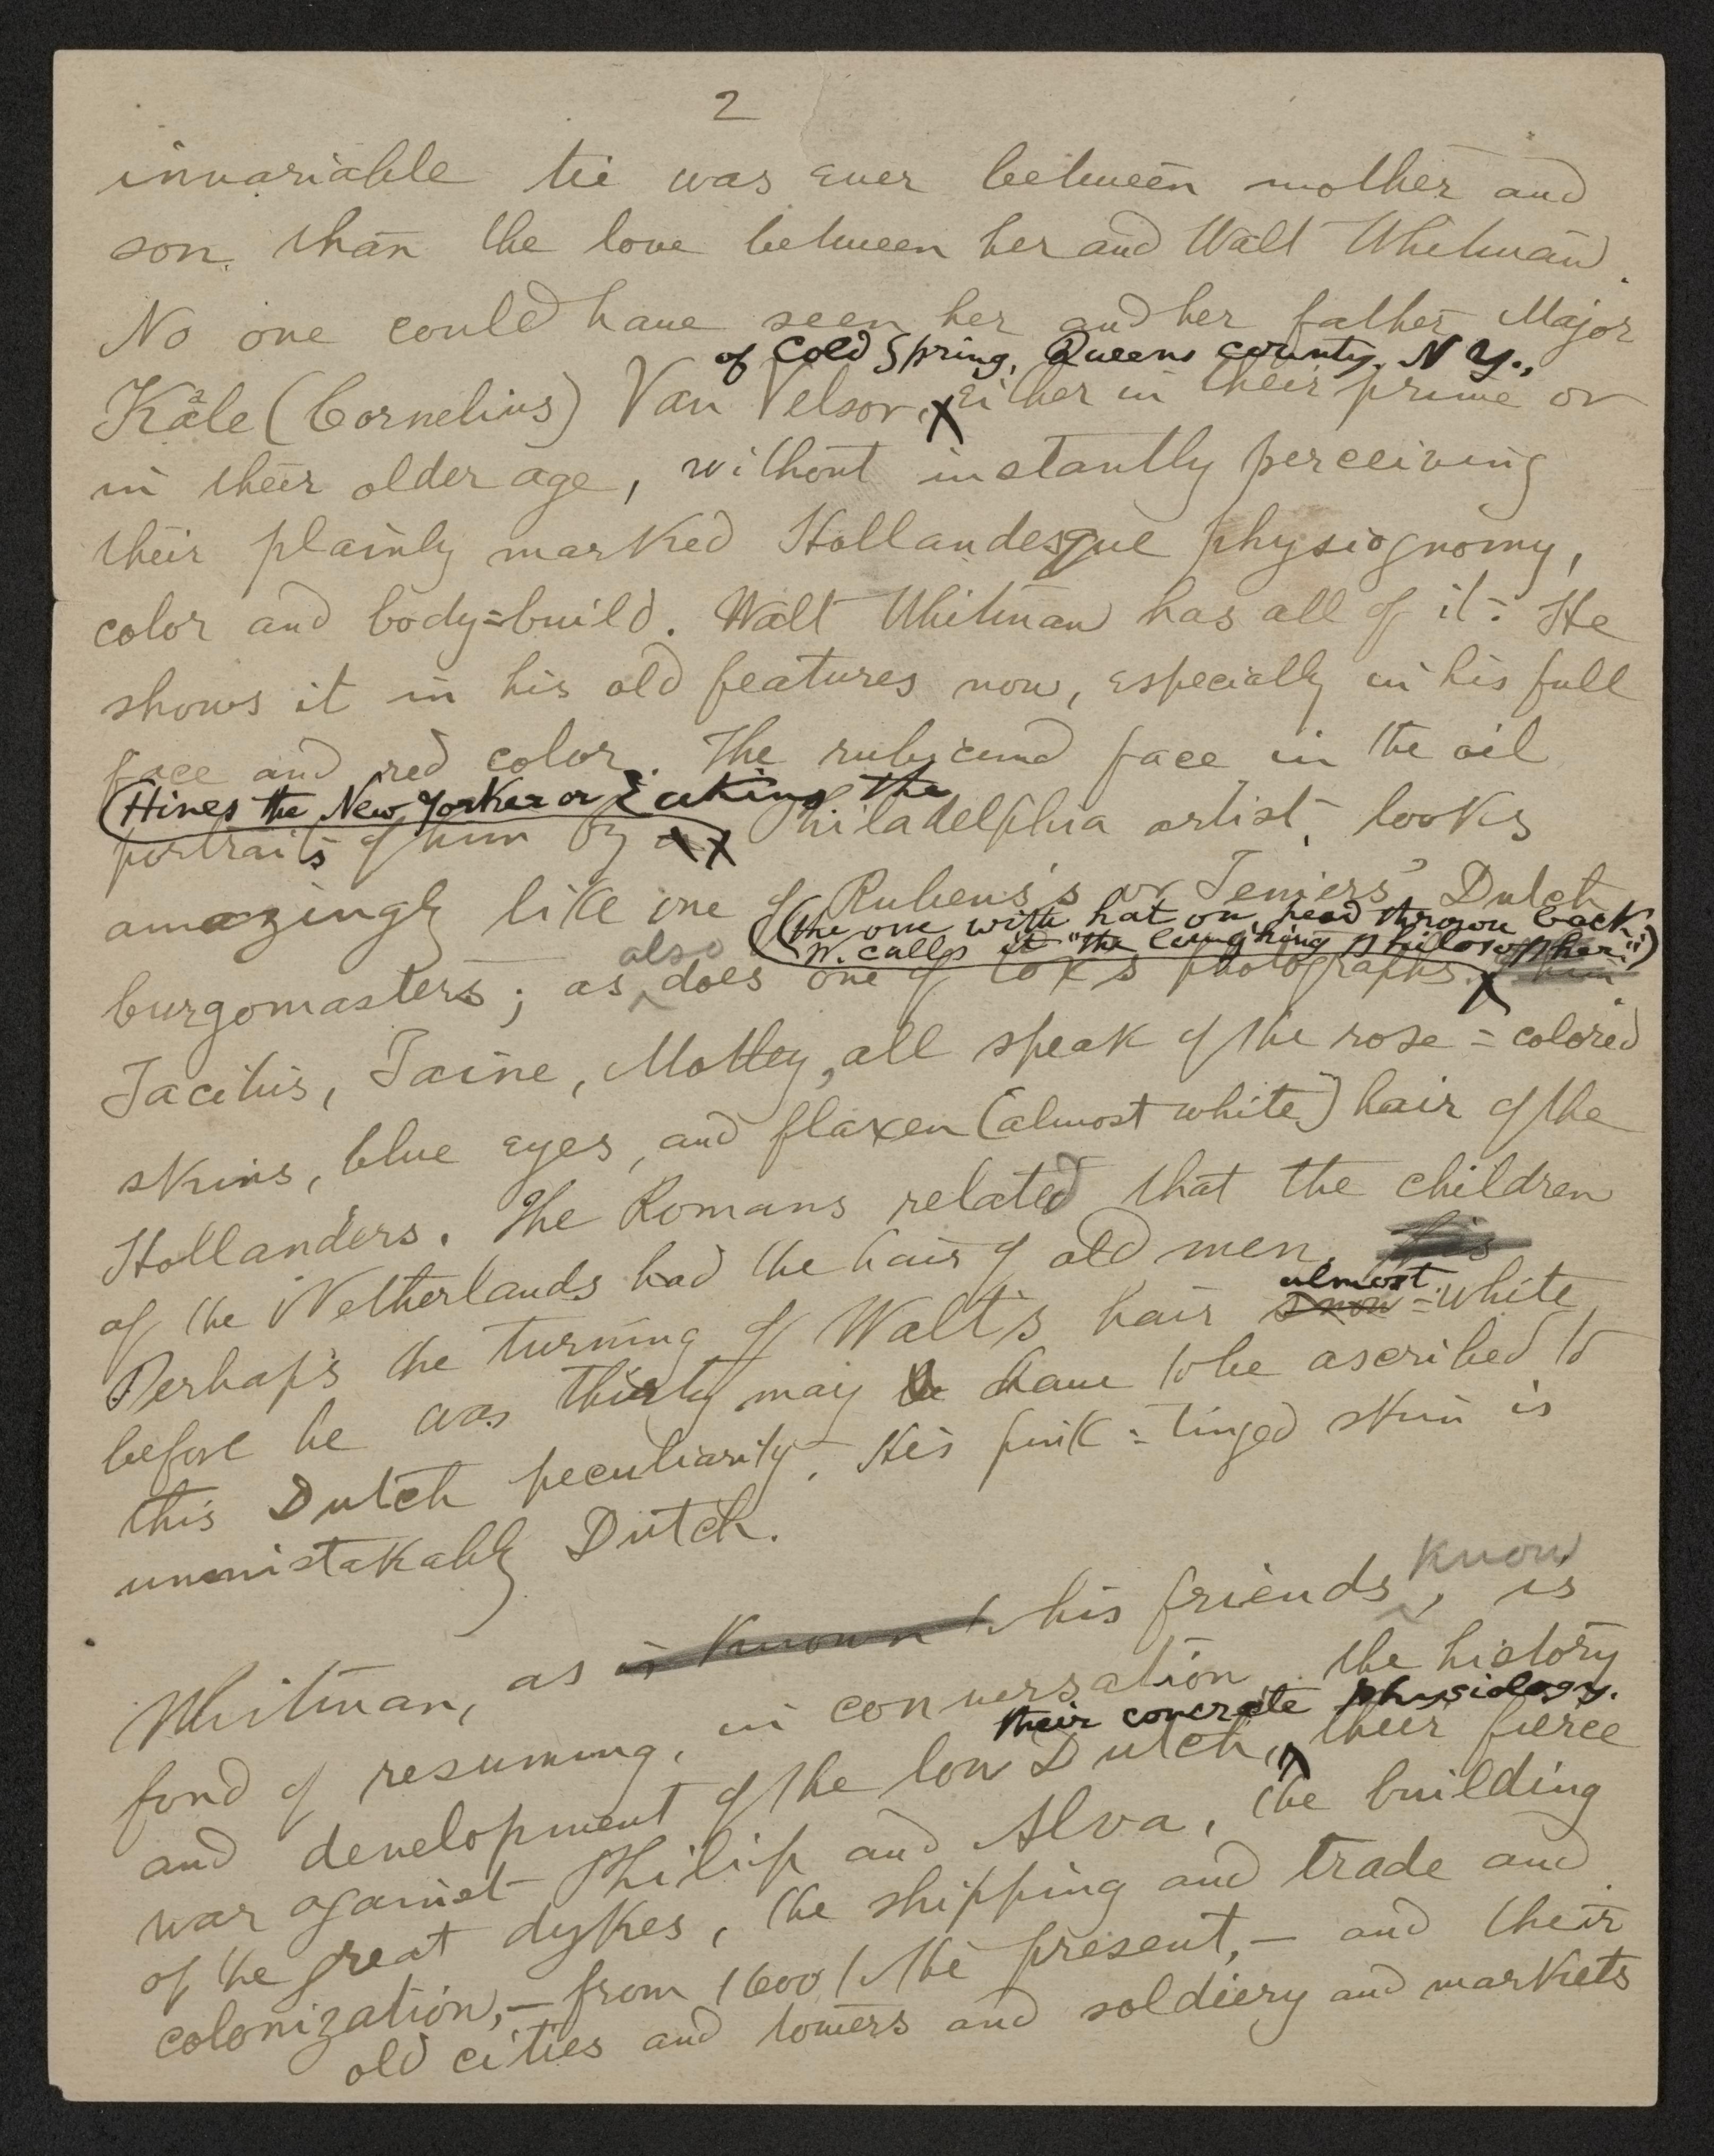 2
invariable tie was ever between mother and
son, than the love between her and Walt Whitman.
No one could have seen her and her father Major
of Cold Spring, Queens county, N Y.,
Kale (Cornelius) Van Velsor, either in their prime or
in their older age, without instantly perceiving
their plainly marked Hollandesque physiognomy,
color and body=build. Walt Whitman has all of it. He
shows it in his old features now, especially in his full
face and red color. The rubicund face in the oil
(Hines the New Yorker or Eakins the
portraits of him by a Philadelphia artist, looks
amazingly like one of Rubens's or Teniers' Dutch
(the one with hat on, head thrown back
W. calls it "the laughing philosopher")
burgomasters; as also does one of Cox's photographs. of him
Tacitus, Taine, Motley, all speak of the rose=colored
skins, blue eyes, and flaxen (almost white) hair of the
Hollanders. The Romans related that the children
of the Netherlands had the hair of old men. His
almost
Perhaps the turning of Walt's hair snow=white,
before he was thirty may be have to be ascribed to
this Dutch peculiarity. His pink=tinged skin is
unmistakably Dutch.
Whitman, as is known to his friends know, is
fond of resuming, in conversation, the history
their concrete physiology,
and development of the low Dutch, their fierce
war against Philip and Alva, the building
of the great dykes, the shipping and trade and
colonization,—from 1600 to the present,—and their
old cities and towers and soldiery and markets